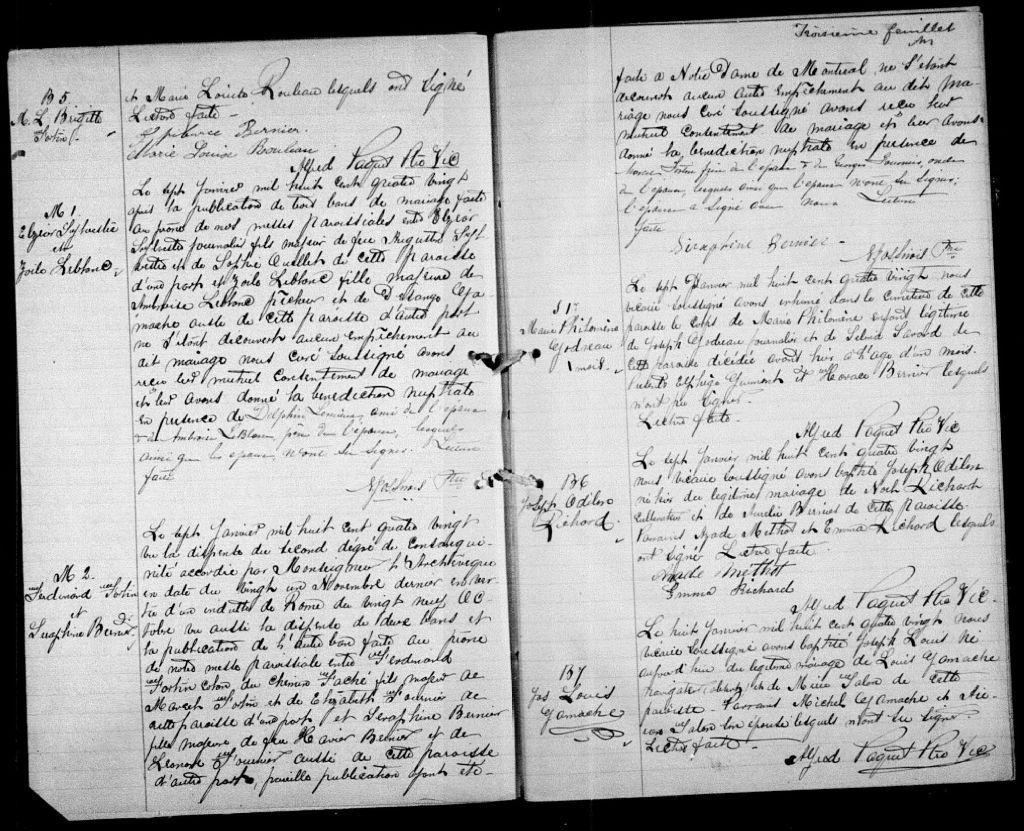 B 5.
M. L. Brigitte
Fortin
et Marie Louise Rouleau lesquels ont signé
Lecture faite -
Bernier.
Marie Louise Rouleau
Alfred Paquet Ptre Vic
M 1
Elzear Sylvestre
et
Zoïle Leblanc
Le sept Janvier mil huit cent quatre vingt
après la publication de trois bans de mariage faite
au prone de nos messes paroissiales entre Elzear
Sylvestre journalier fils majeur de feu Augustin Syl
vestre et de Sophie Ouellet de cette paroisse
d'une part et Zoïle Leblanc fille majeure de
Ambroise Leblanc pêcheur et de Ga
mache aussi de cette paroisse d'autre part
ne s'étant découvert aucun empêchement au
dit mariage nous curé soussigné avons
reçu leur mutuel consentement de mariage
et leur avons donné la benediction nuptiale
en presence de Delphin Lemieux, ami de l'époux
& de Ambroise LeBlanc, père de l'épouse, lesquels
ainsi que les epoux, n'ont su signer. Lecture
faite
Ptre
M 2.
Ferdinand Fortin
et
Seraphine Bernier
Le sept Janvier mil huit cent quatre vingt
vu la dispense du second dégré de consangui-
nité accordée par Monseigneur l'Archevêque
en date du vingt un Novembre dernier en ver
tu d'un indult de Rome du vingt neuf Oc
tobre vu aussi la dispense de deux bans et
la publication de l'autre ban faite au prone
de notre messe paroissiale entre Ferdinand
Fortin du chemin Taché fils majeur de
Marcel Fortin et de Elizabeth Fournier de
cette paroisse d'une part, et Seraphine Bernier
fille majeure de feu Xavier Bernier et de
Leonore Fournier aussi de cette paroisse
d'autre part, pareille publication ayant été-
Troisième feuillet
faite a Notre Dame de Montreal, ne s'étant
découvert aucun autre empêchement au dit ma
riage nous curé soussigné avons reçu leur
mutuel consentement de mariage et leur avons
donné la benediction nuptiale en presence de
Fortin frère de l'époux & de Georges Fournier, oncle
de l'épouse, lesquels ainsi que l'époux n'ont su signer;
l'épouse a signé avec nous Lecture
faite
Seraphine Bernier -
Ptre
S 1er
Marie Philomène
Godreau
1 mois.
Le sept Janvier mil huit cent quatre vingt nous
vicaire soussigné avons inhumé dans le cimetière de cette
paroisse le corps de Marie Philomène enfant légitime
de Joseph Godreau journalier et de Selina Savard de
cette paroisse décédée avant hier a l'age d'un mois.
Presents Elphège Guimont et Horace Bernier lesquels
n'ont pu signer.
Lecture faite.
Alfred Paquet Ptre Vic
B 6
Joseph Odilon
Richard.
Le sept Janvier mil huit cent quatre vingt
nous vicaire soussigné avons baptisé Joseph Odilon
né hier du legitime mariage de Noel Richard
cultivateur et de Aurelie Bernier de cette paroisse.
Parrains Amde Methot et Emma Richard lesquels
ont signé Lecture faite.
Methot
Emma Richard
Alfred Paquet Ptre Vic.
B 7
Jos Louis
Gamache
Le huit Janvier mil huit cent quatre vingt nous
vicaire soussigné avons baptisé Joseph Louis né
aujourd'hui du legitime mariage de Louis Gamache
navigateur et de Talon de cette
paroisse - Parrains Michel Gamache et
Talon son épouse lesquels n'ont su signer.
Lecture faite -
Alfred Paquet Ptre Vic